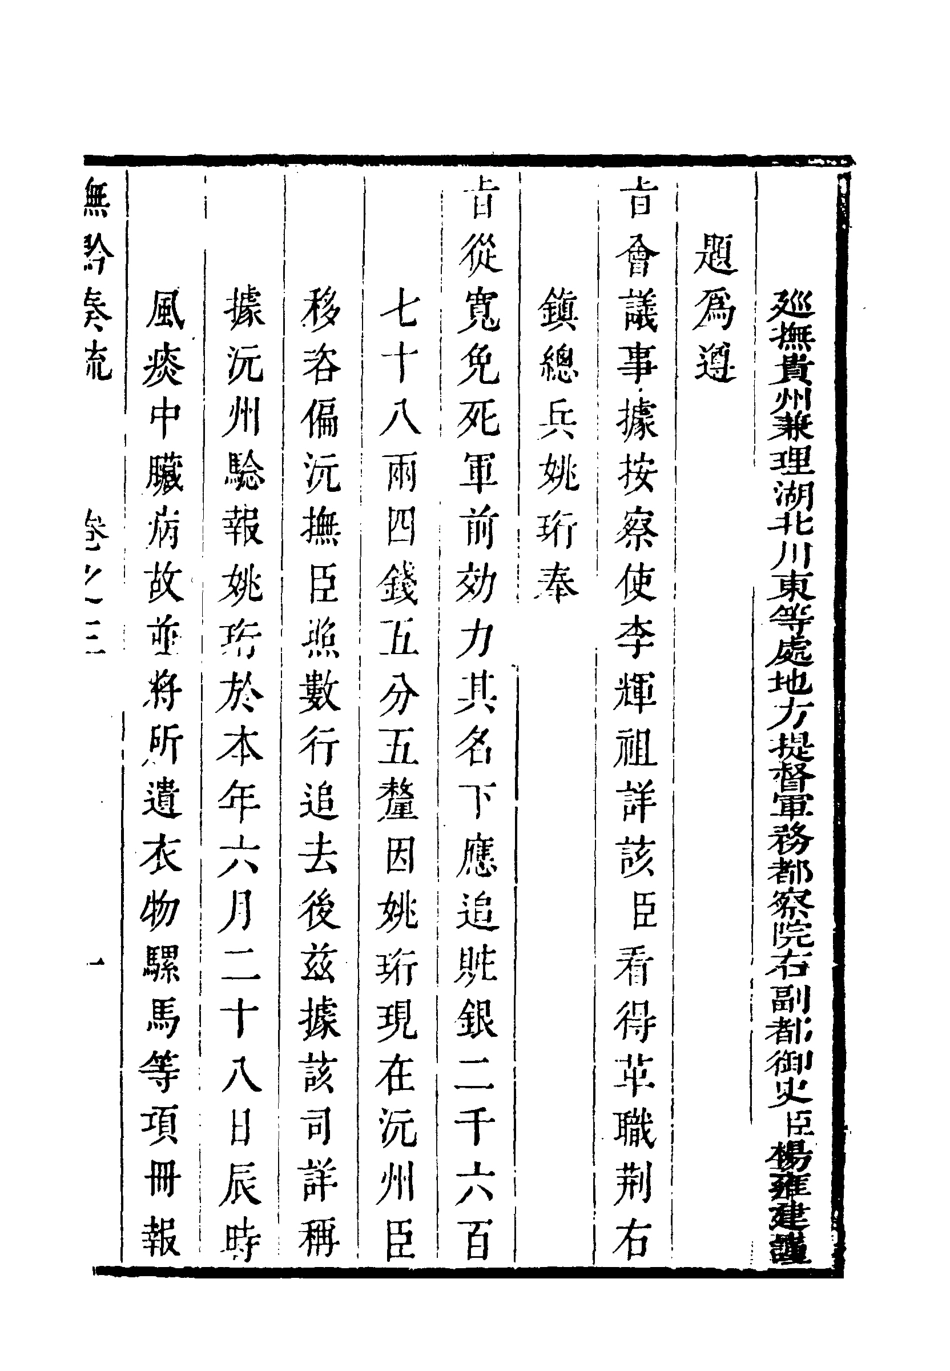 廵撫貴州兼理湖北川東等處地方提督軍務都察院右副都御史臣楊雍建謹
題爲遵
㫖會議事據按察使李輝祖詳該臣看得革職荆右
鎮總兵姚珩奉
㫖從寬免死軍前効力其名下應追賍銀二千六百
七十八兩四錢五分五釐因姚珩現在沅州臣
移咨偏沅撫臣照數行追去後兹據該司詳稱
據沅州騐報姚珩於本年六月二十八日辰時
風痰中臟病故並將所遺衣物騾馬等項冊報
撫黔奏疏 卷之三 一